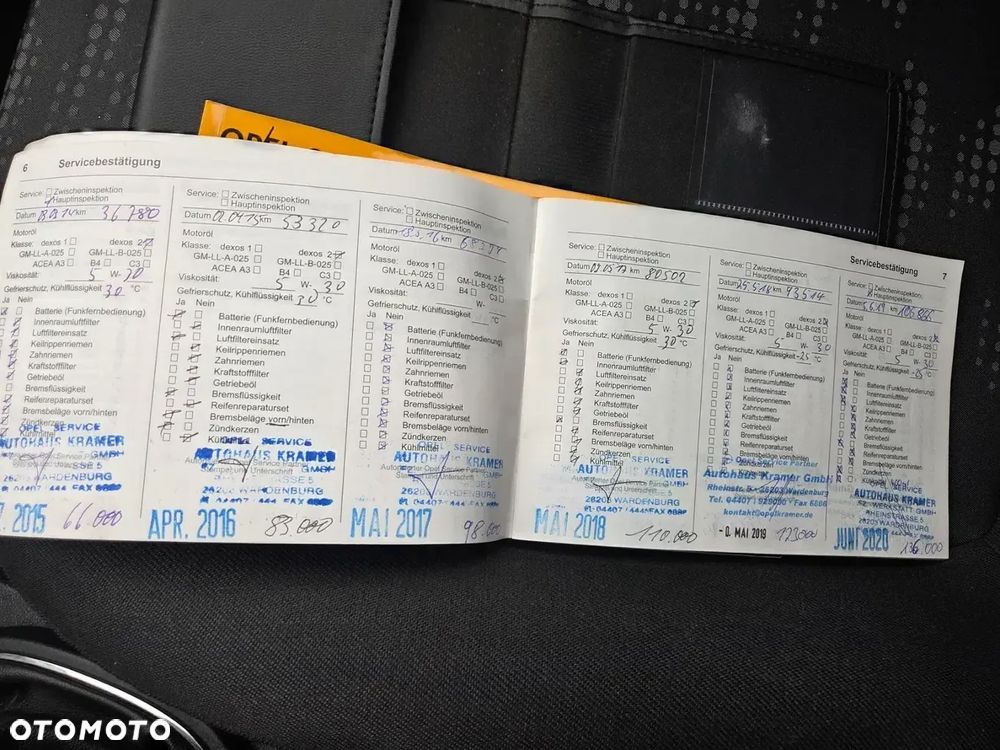 OPEL
6 Servicebestätigung
Service: Zwischeninspektion
Hauptinspektion
Datum km 36780
Motoröl
Klasse: dexos 1 dexos 2
GM-LL-A-025 GM-LL-B-025
ACEA A3 B4 C3
Viskosität: 5 W- 30
Gefrierschutz, Kühlflüssigkeit 30 °C
Ja Nein
Batterie (Funkfernbedienung)
Innenraumluftfilter
Luftfiltereinsatz
Keilrippenriemen
Zahnriemen
Kraftstofffilter
Getriebeöl
Bremsflüssigkeit
Reifenreparaturset
Bremsbeläge vorn/hinten
Zündkerzen
Kühlmittel
OPEL SERVICE
AUTOHAUS KRAMER
GMBH
WARDENBURG
2015 66.000
Service: Zwischeninspektion
Hauptinspektion
Datum 02.04.15 km 53320
Motoröl
Klasse: dexos 1 dexos 2
GM-LL-A-025 GM-LL-B-025
ACEA A3 B4 C3
Viskosität: 5 W- 30
Gefrierschutz, Kühlflüssigkeit 30 °C
Ja Nein
Batterie (Funkfernbedienung)
Innenraumluftfilter
Luftfiltereinsatz
Keilrippenriemen
Zahnriemen
Kraftstofffilter
Getriebeöl
Bremsflüssigkeit
Reifenreparaturset
Bremsbeläge vorn/hinten
Zündkerzen
OPEL SERVICE
AUTOHAUS KRAMER
GMBH
WARDENBURG
APR. 2016 83.000
Service: Zwischeninspektion
Hauptinspektion
Datum km
Motoröl
Klasse: dexos 1 dexos 2
GM-LL-A-025 GM-LL-B-025
ACEA A3 B4 C3
Viskosität: W-
Gefrierschutz, Kühlflüssigkeit °C
Ja Nein
Batterie (Funkfernbedienung)
Innenraumluftfilter
Luftfiltereinsatz
Keilrippenriemen
Zahnriemen
Kraftstofffilter
Getriebeöl
Bremsflüssigkeit
Reifenreparaturset
Bremsbeläge vorn/hinten
Zündkerzen
Kühlmittel
OPEL SERVICE
AUTOHAUS KRAMER
GMBH
26203 WARDENBURG
MAI 2017 98.000
Service: Zwischeninspektion
Hauptinspektion
Datum km 80502
Motoröl
Klasse: dexos 1 dexos 2
GM-LL-A-025 GM-LL-B-025
ACEA A3 B4 C3
Viskosität: 5 W- 30
Gefrierschutz, Kühlflüssigkeit 30 °C
Ja Nein
Batterie (Funkfernbedienung)
Innenraumluftfilter
Luftfiltereinsatz
Keilrippenriemen
Zahnriemen
Kraftstofffilter
Getriebeöl
Bremsflüssigkeit
Reifenreparaturset
Bremsbeläge vorn/hinten
Zündkerzen
Kühlmittel
OPEL SERVICE
AUTOHAUS KRAMER
GMBH
26203 WARDENBURG
MAI 2018 110.000
Service: Zwischeninspektion
Hauptinspektion
Datum 25.5.18 km 93514
Motoröl
Klasse: dexos 1 dexos 2
GM-LL-A-025 GM-LL-B-025
ACEA A3 B4 C3
Viskosität: 5 W- 30
Gefrierschutz, Kühlflüssigkeit -25 °C
Ja Nein
Batterie (Funkfernbedienung)
Innenraumluftfilter
Luftfiltereinsatz
Keilrippenriemen
Zahnriemen
Kraftstofffilter
Getriebeöl
Bremsflüssigkeit
Reifenreparaturset
Bremsbeläge vorn/hinten
Zündkerzen
Opel Service Partner
Autohaus Kramer GmbH
Rheinstr. 5 · 26203 Wardenburg
kontakt@opelkramer.de
MAI 2019 123000
Servicebestätigung 7
Service: Zwischeninspektion
Hauptinspektion
Datum km
Motoröl
Klasse: dexos 1 dexos 2
GM-LL-A-025 GM-LL-B-025
ACEA A3 B4 C3
Viskosität: 5 W- 30
Gefrierschutz, Kühlflüssigkeit -25 °C
Ja Nein
Batterie (Funkfernbedienung)
Innenraumluftfilter
Luftfiltereinsatz
Keilrippenriemen
Zahnriemen
Kraftstofffilter
Getriebeöl
Bremsflüssigkeit
Reifenreparaturset
Bremsbeläge vorn/hinten
Zündkerzen
OPEL SERVICE
AUTOHAUS KRAMER
KFZ-WERKSTATT GMBH
RHEINSTRASSE 5
26203 WARDENBURG
JUNI 2020 136.000
OTOMOTO